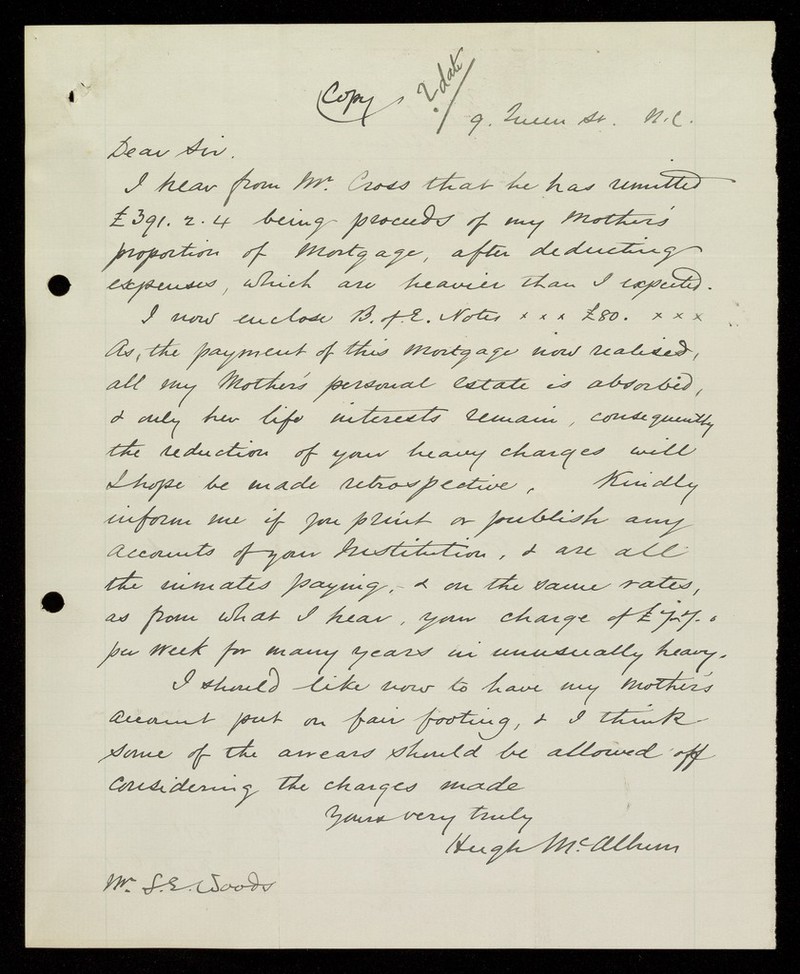 Copy ? date
9. Queen St. N.C.
Dear Sir.
I hear from Mr. Cross that he has remitted
£391. 2. 4 being proceeds of my Mother's
proportion of Mortgage, after deducting
expenses, which are heavier than I expected.
I now enclose B. of E. Notes x x x £80. x x x
As, the payment of this Mortgage now realised,
all my Mother's personal Estate is absorbed,
& only her life interests remain, consequently
the reduction of your heavy charges will
I hope be made retrospective. Kindly
inform me if you print or publish any
accounts of your Institution, & are all
the inmates paying, & on the same rates,
as from what I hear, your charge of
per week for many years is unusually heavy.
I should like now to have my Mother's
account put on fair footing, & I think
some of the arrears should be allowed off
considering the charges made
Yours very truly
Hugh McAllum
Mr. S.E. Woods